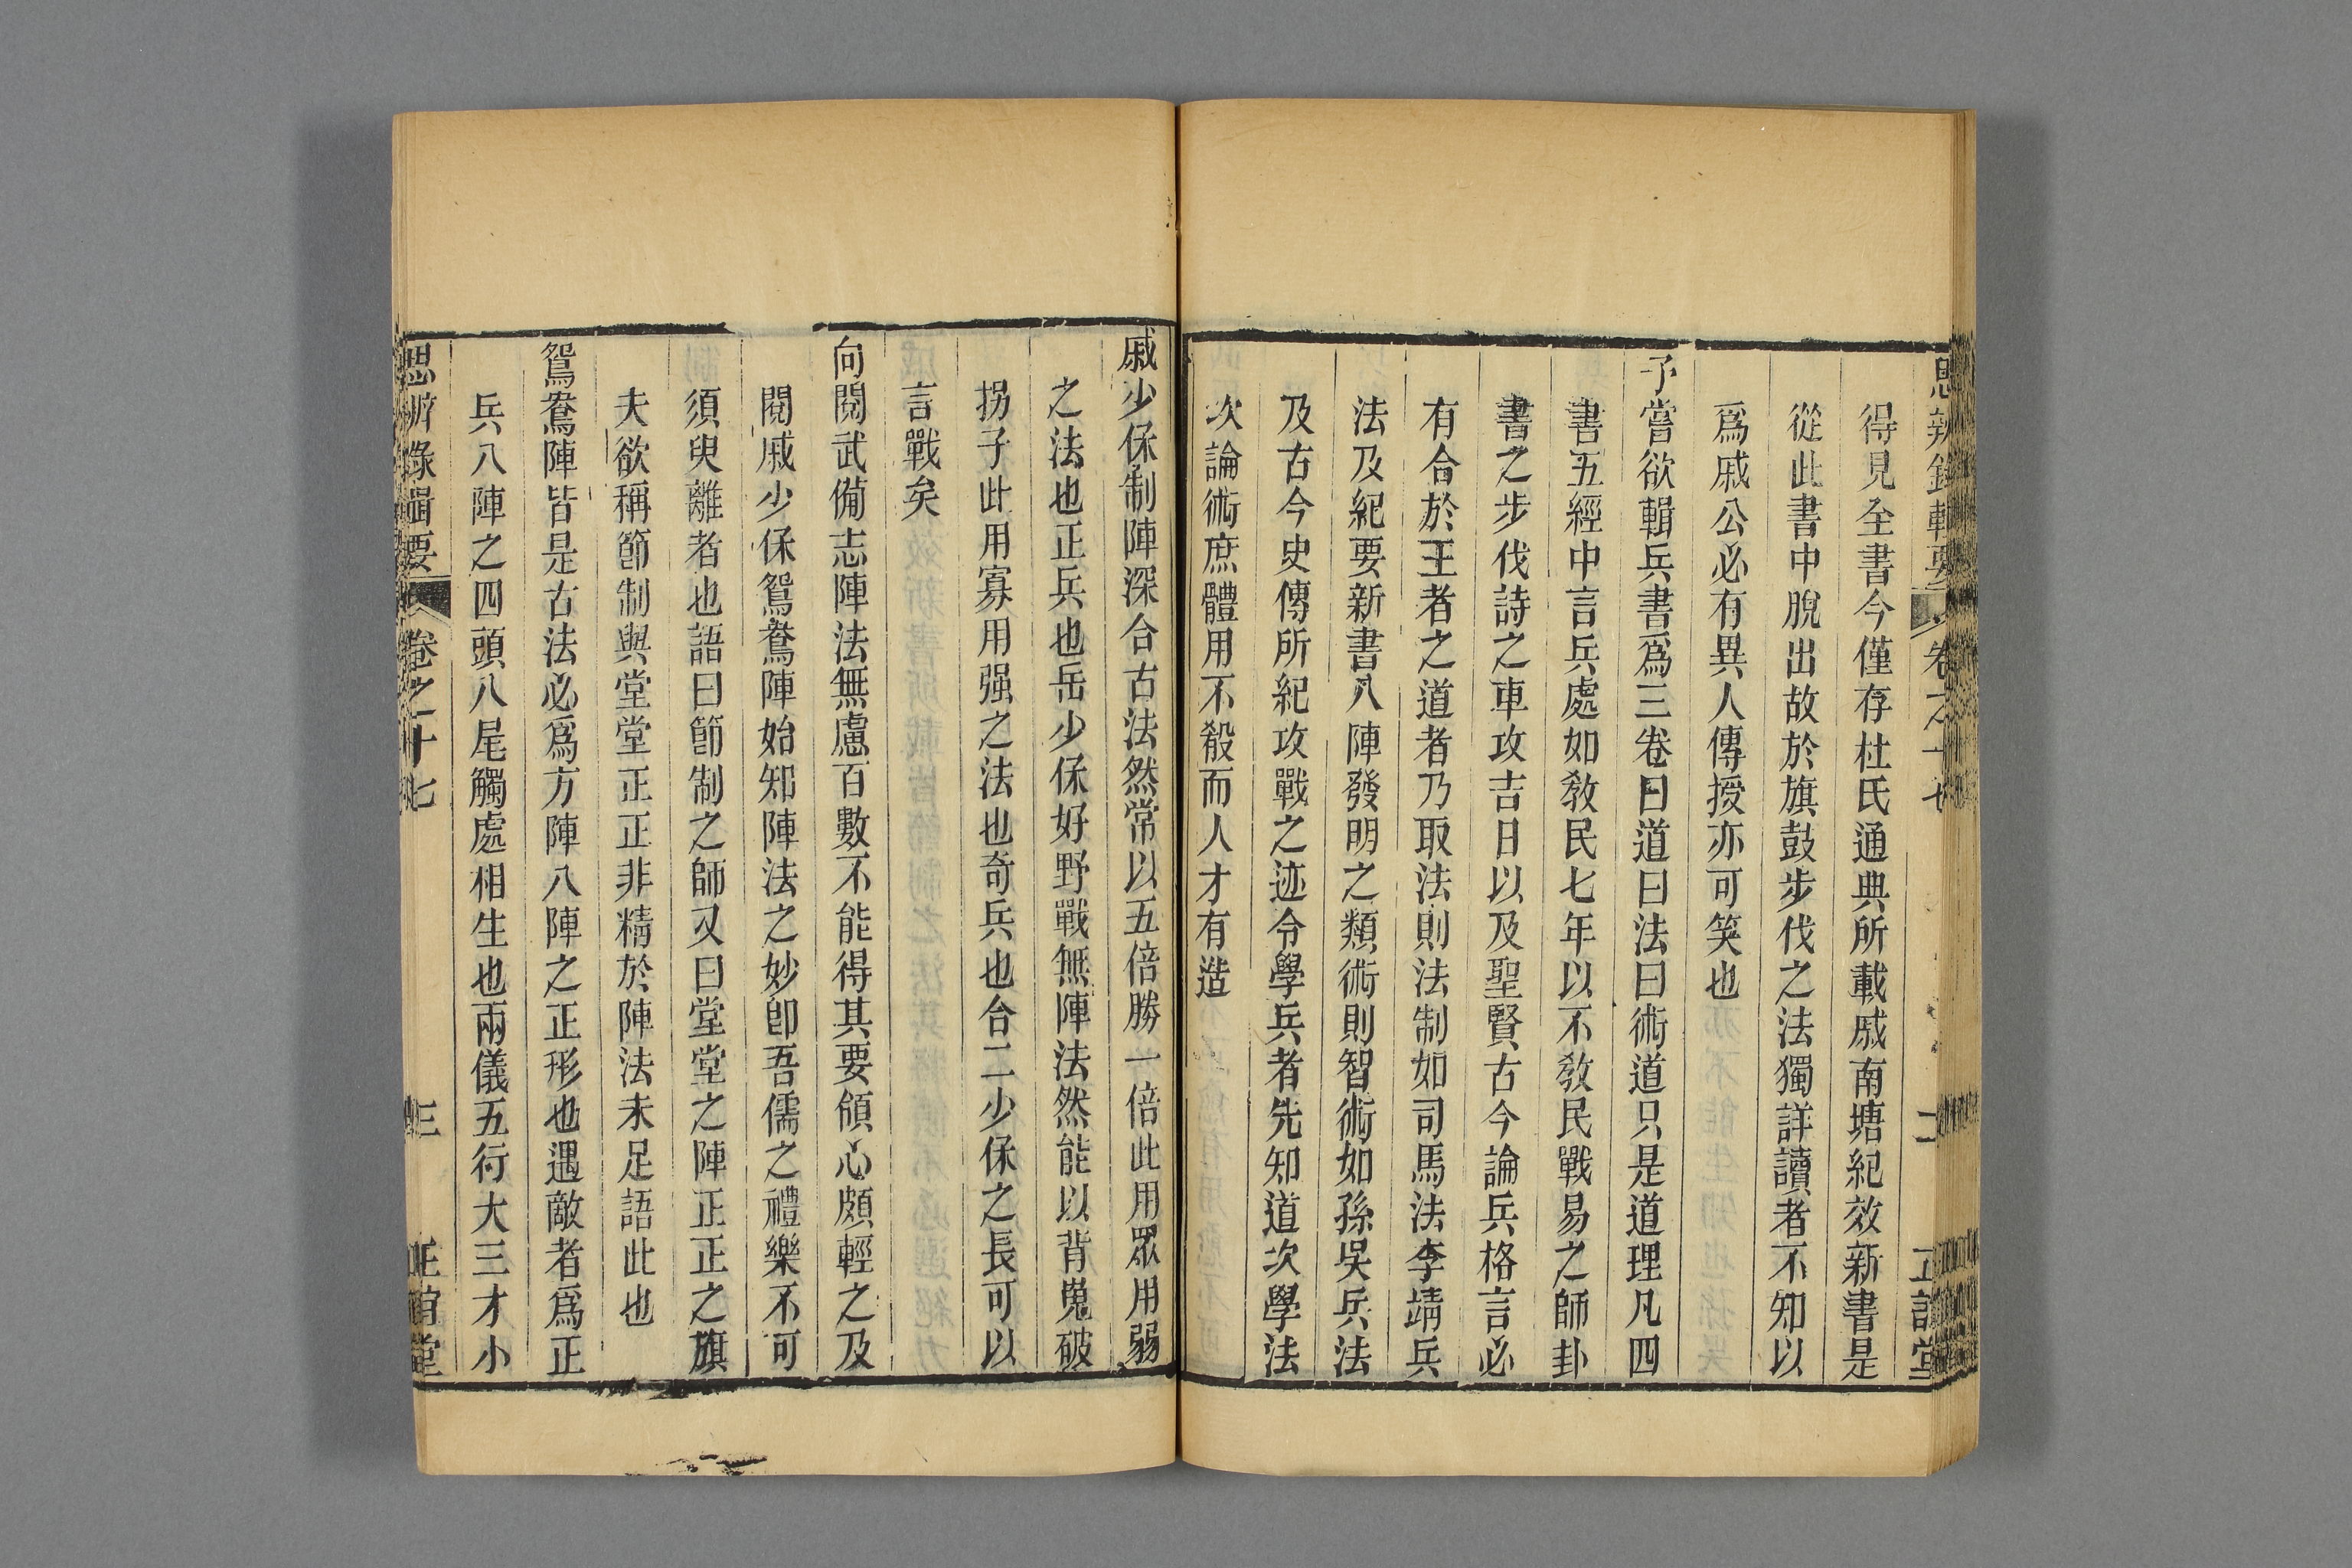 思辨錄輯要 卷之十七 二 正誼堂
得見至書今僅存杜氏通典所載戚南塘紀效新書是
從此書中脫出故於旗鼓步伐之法獨詳讀者不知以
爲戚公必有異人傳授亦可笑也
予嘗欲輯兵書爲三卷曰道曰法曰術道只是道理凡四
書五經中言兵處如敎民七年以不敎民戰易之師卦
書之步伐詩之車攻吉日以及聖賢古今論兵格言必
有合於王者之道者乃取法則法制如司馬法李靖兵
法及紀要新書八陣發明之類術則智術如孫吳兵法
及古今史傳所紀攻戰之迹令學兵者先知道次學法
次論術庶體用不殽而人才有造
戚少保制陣深合古法然常以五倍勝一倍此用眾用弱
之法也正兵也岳少保好野戰無陣法然能以背嵬破
拐子此用寡用强之法也奇兵也合二少保之長可以
言戰矣
向閱武備志陣法無慮百數不能得其要領心頗輕之及
閱戚少保鴛鴦陣始知陣法之妙卽吾儒之禮樂不可
須臾離者也語曰節制之師又曰堂堂之陣正正之旗
夫欲稱節制與堂堂正正非精於陣法未足語此也
鴛鴦陣皆是古法必爲方陣八陣之正形也遇敵者爲正
兵八陣之四頭八尾觸處相生也兩儀五行大三才小
思辨錄輯要 卷之十七 三 正誼堂